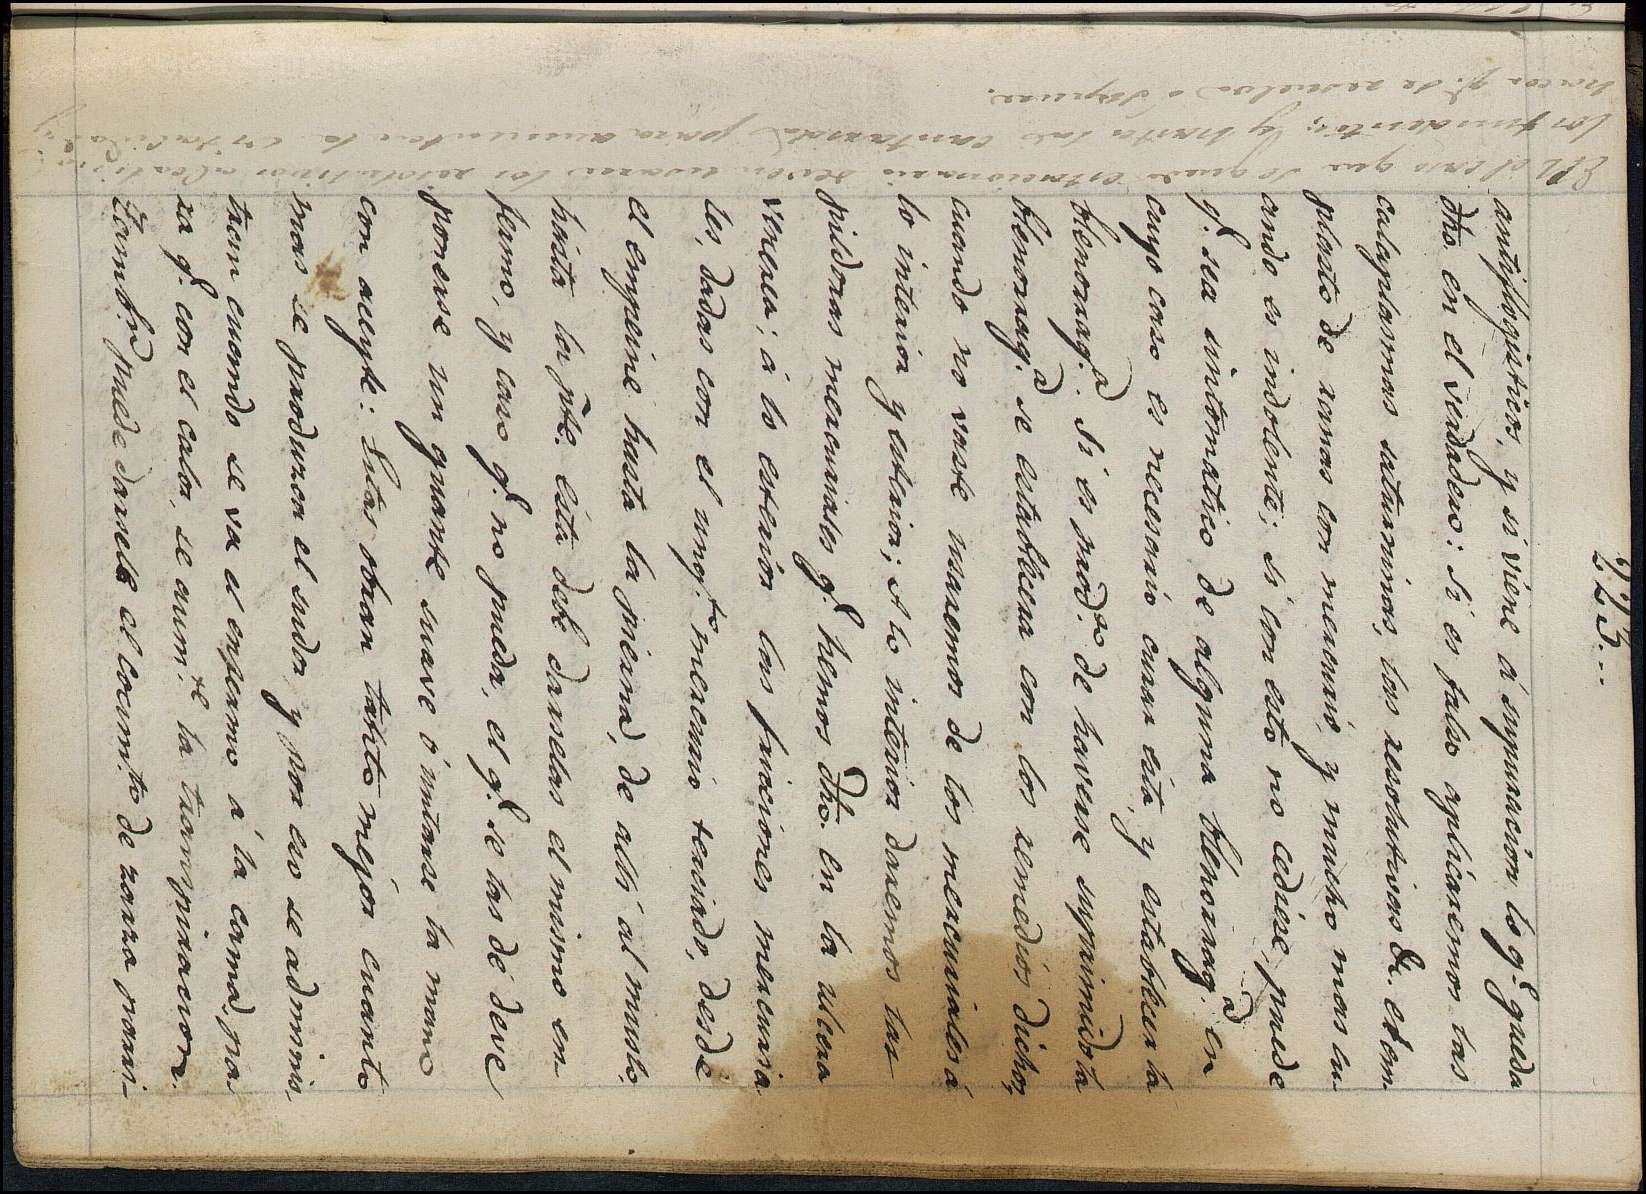 223...
antiflogisticos, y si viene á supuracion lo q.e queda
dho en el verdadero: Si es falso aplicaremos las
cataplasmas saturninas, los resolutivos &. el em-
plasto de ranas con mercurio, y mucho mas cu-
ando es indolente; si con esto no cediese, puede
q.e sea sintomatico de alguna blenorrag.a en
cuyo caso es necesario curar esta, y establecer la
blenorrag.a. Si es prod.do de haverse suprimido la
blenorrag.a se establecera con los remedios dichos,
cuando no vaste usaremos de los mercuriales á
lo interior y exterior; A lo interior daremos las
pildoras mercuriales q.e hemos dho. en la ulcera
venerea; á lo exterior las fricciones mercuria-
les, dadas con el ung.to mercurio terciado, desde
el empeine hasta la pierna, de alli al muslo,
hasta la pte. esta debe darselas el mismo en-
fermo, y caso q.e no pueda, el q.e se las dé deve
ponerse un guante suave ó untarse la mano
con aceyte: Estas obran tanto mejor cuanto
mas se produzca el sudor y por eso se adminis-
tran cuando se va el enfermo á la cama, pa-
ra q.e con el calor, se aum.te la transpiracion.
Tamb.n puede darsele el cocim.to de zarza parri-
En el caso que se quede estacionario deven usarse los resolutivos
los fundentes, y hasta las cantaridas para aumentar la
hacer q.e se resuelva o supure.